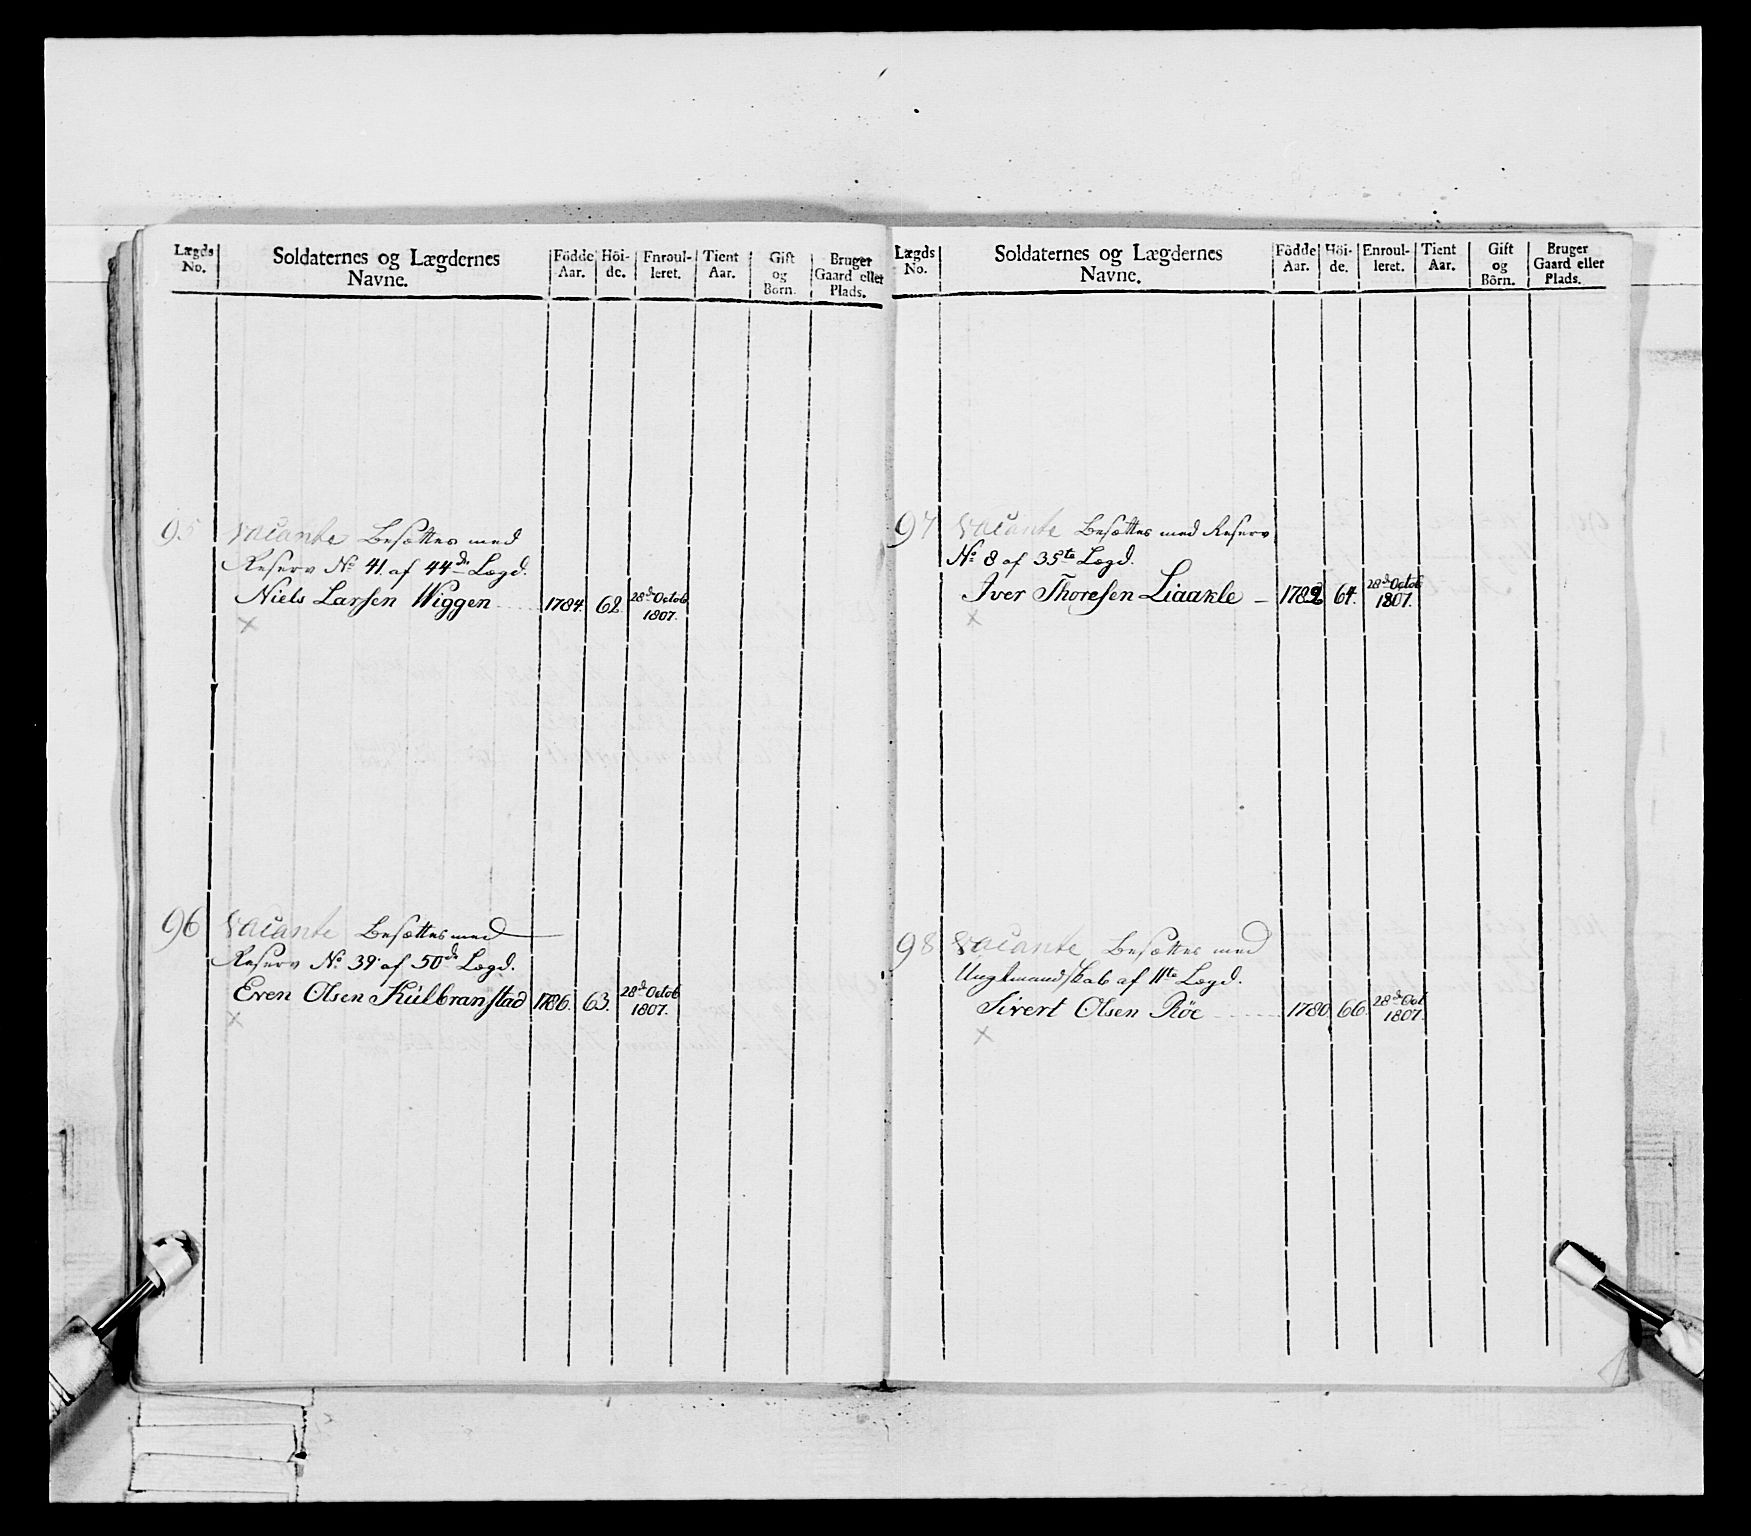 Lægds No.
Soldaternes og Lægdernes Navne.
Födde Aar.
Höi-de.
Enroul-leret.
Tient Aar.
Gift og Börn.
Bruger Gaard eller Plads.
95 Vacante Besættes med
Reserv No 41. af 44de Lægd.
Niels Larsen Wiggen 1784. 62. 28de Octob 1807.
×
96 Vacante Besættes med
Reserv No 39. af 50de Lægd.
Even Olsen Kúlbranstad 1786. 63. 28de Octob 1807.
×
Lægds No.
Soldaternes og Lægdernes Navne.
Födde Aar.
Höi-de.
Enroul-leret.
Tient Aar.
Gift og Börn.
Bruger Gaard eller Plads.
97 Vacante Besættes med Reserv
No 8 af 35te Lægd.
Iver Thoresen Liaakle 1782 64. 28de Octob 1807.
×
98 Vacante Besættes med
Ungtmandskab af 11te Lægd.
Sivert Olsen Röe 1780. 66. 28de Oct 1807.
×